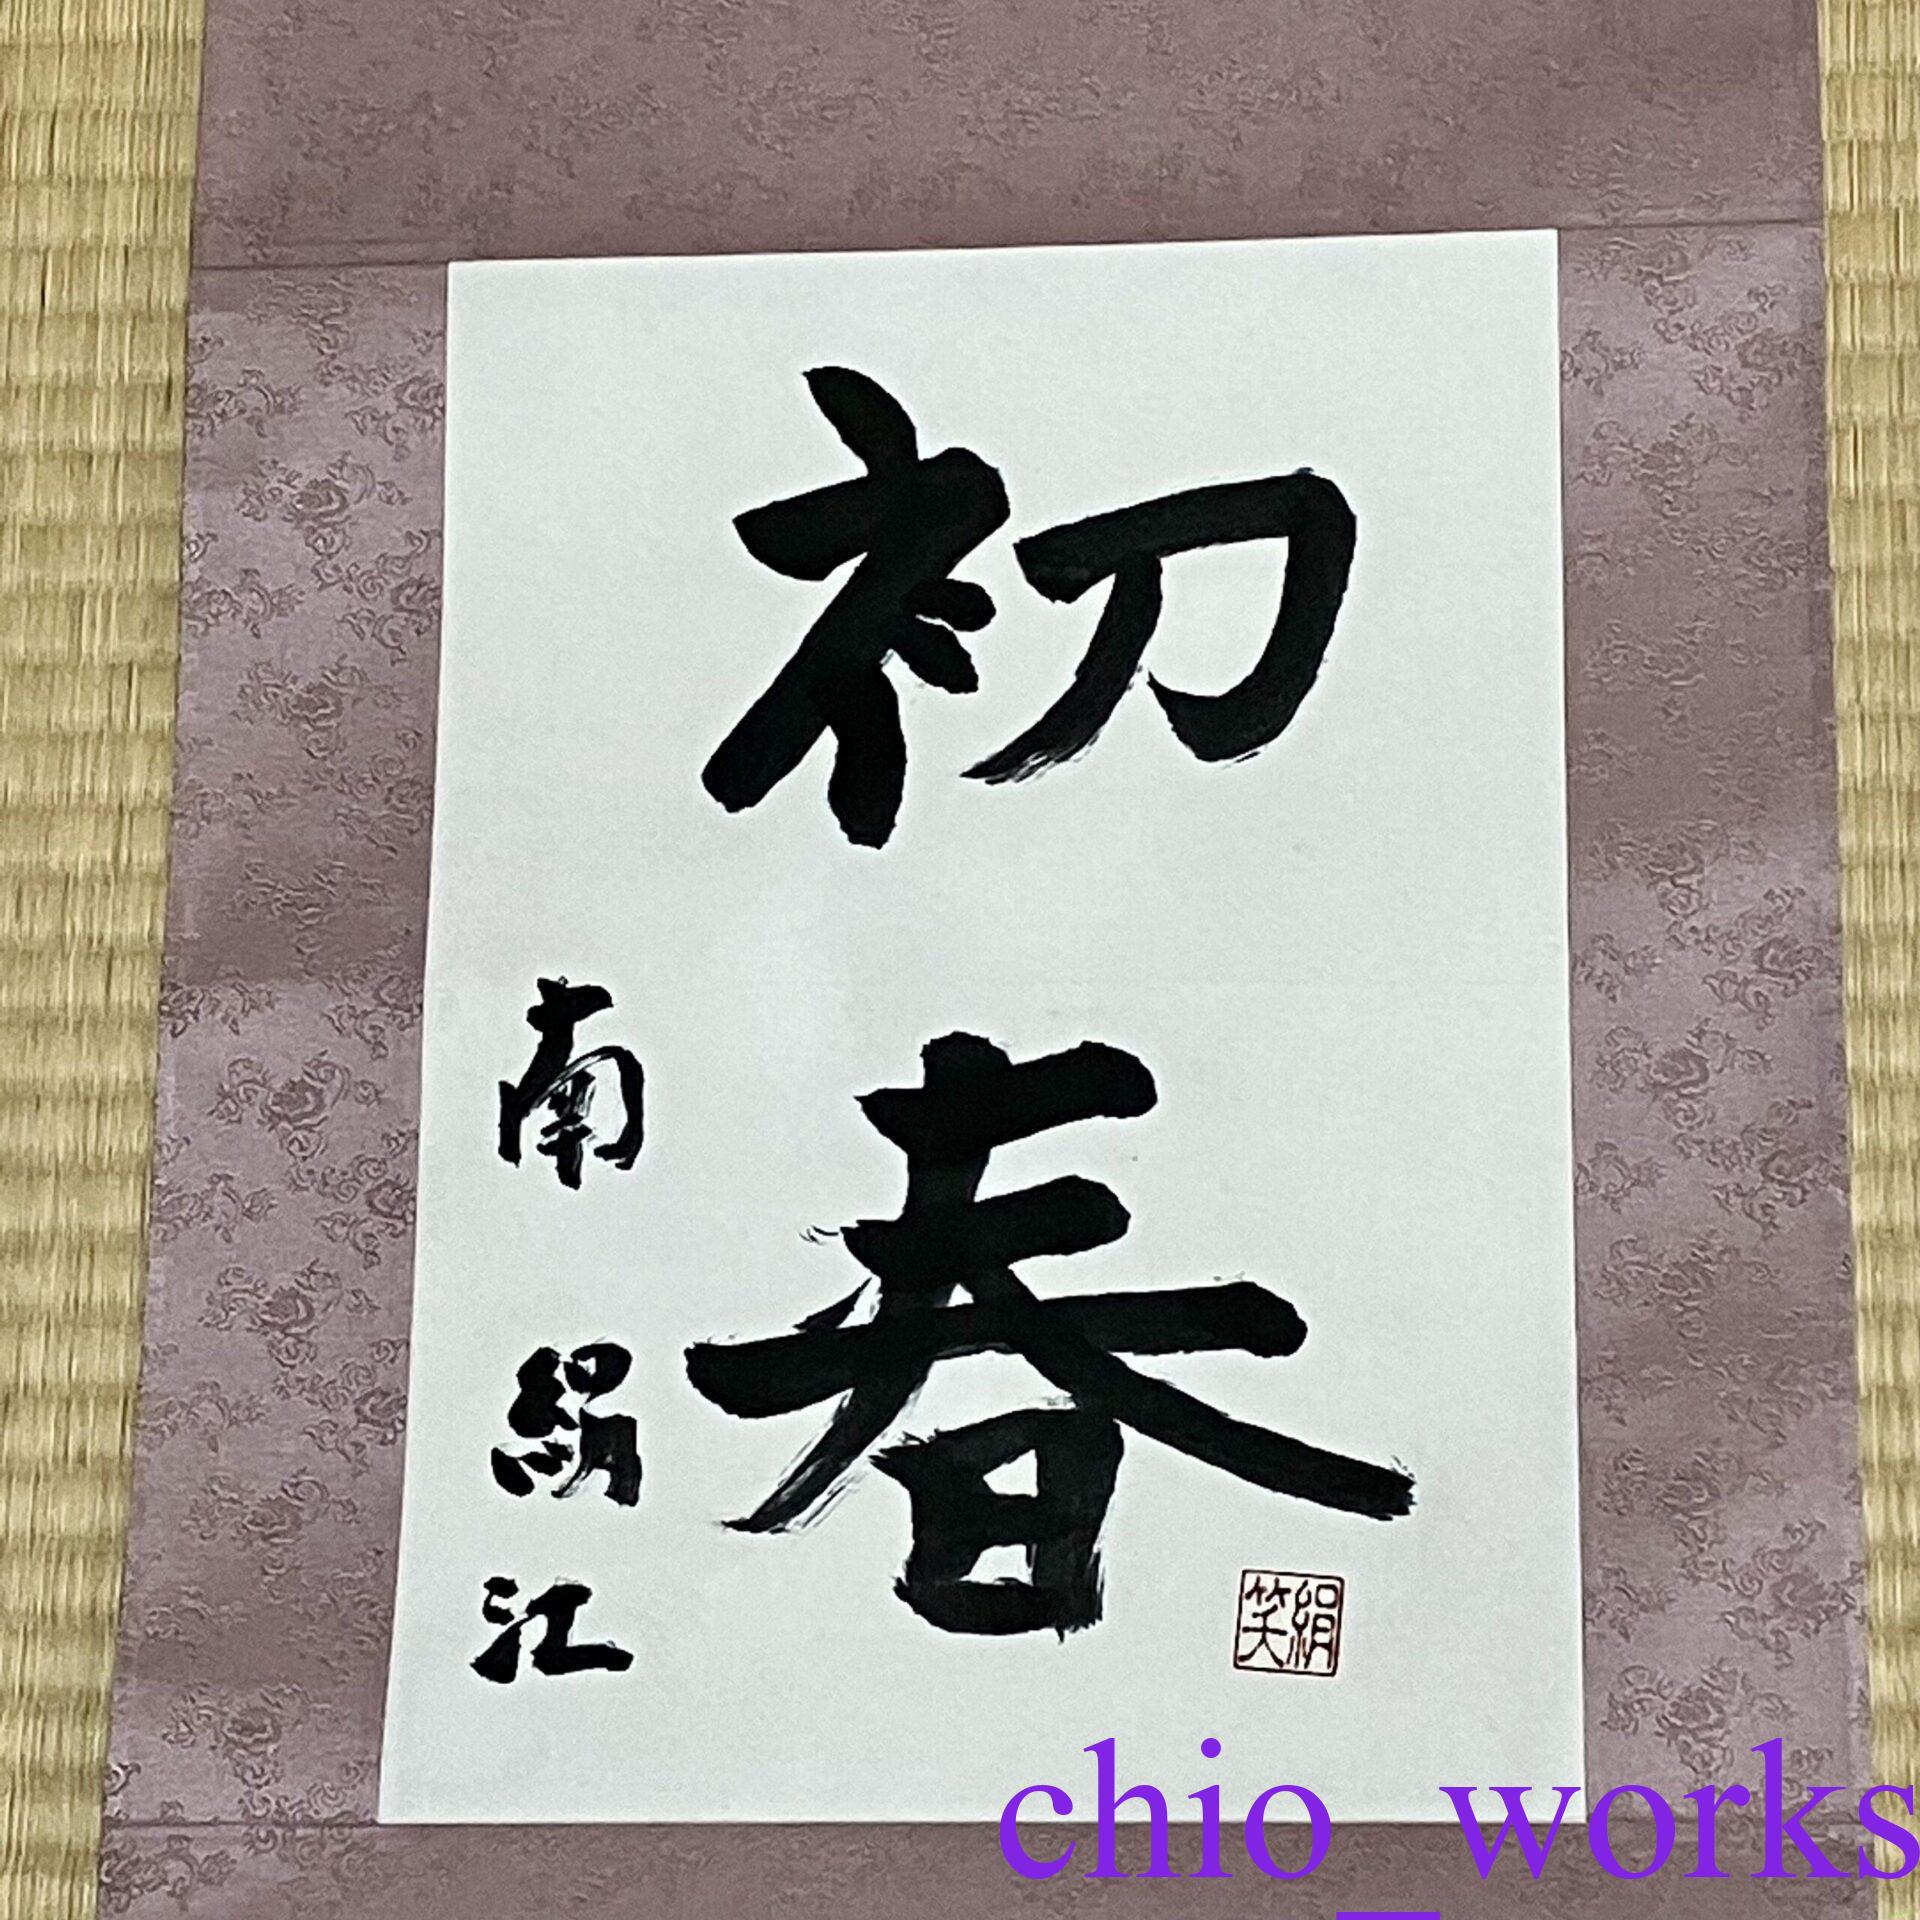 初春
南絹江
絹笑
chio_works